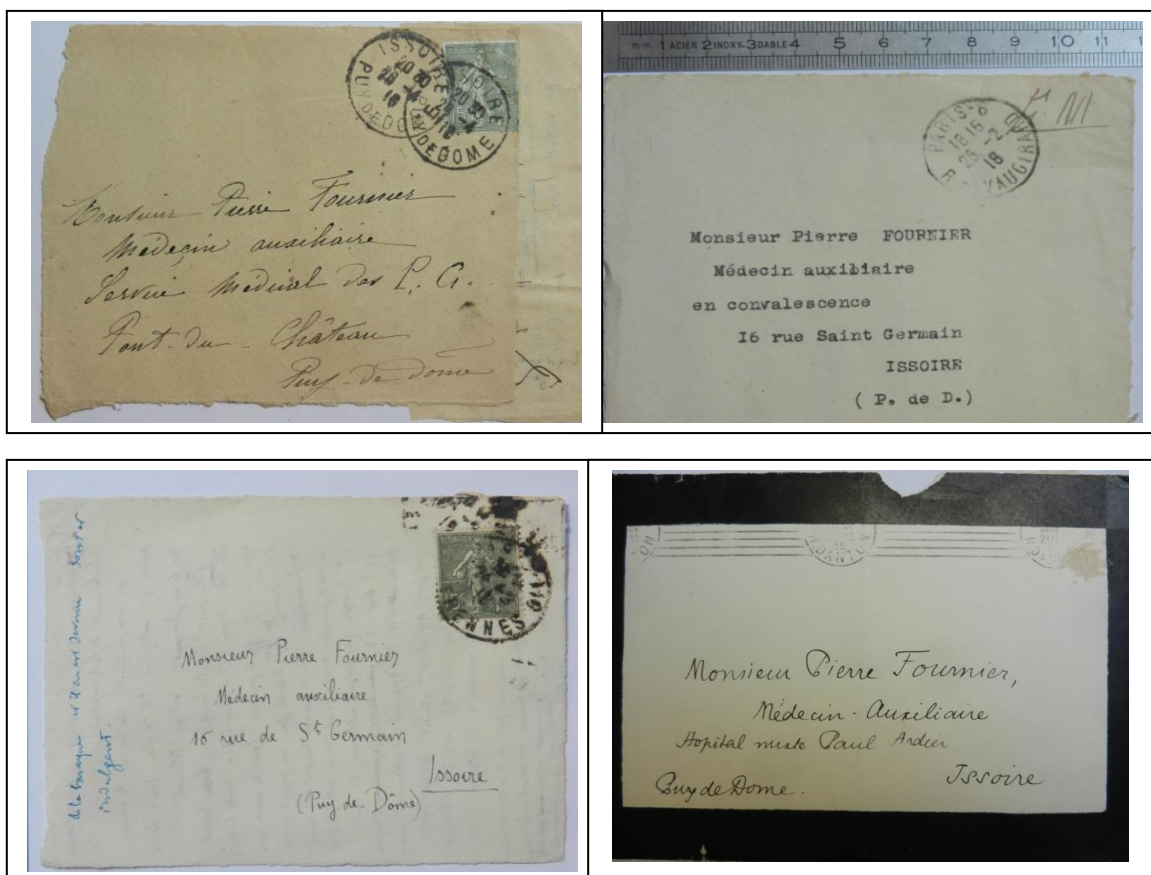 ISSOIRE
20 30
PUY DE DOME
Monsieur Pierre Fournier
Médecin auxiliaire
Service Médical des P. G.
Pont-du-Château
Puy-de-dôme
m.m. 1 ACIER 2 INOXY-3 DABLE 4 5 6 7 8 9 10 11
F. M
PARIS-6
18 15
25 -2
18
R. VAUGIRARD
Monsieur Pierre FOURNIER
Médecin auxibiaire
en convalescence
I6 rue Saint Germain
ISSOIRE
( P. de D.)
de la baraque
indulgent.
Monsieur Pierre Fournier
Médecin auxiliaire
16 rue de St Germain
Issoire
(Puy de Dôme)
Monsieur Pierre Fournier,
Médecin-Auxiliaire
Hopital mixte Paul Ardier
Issoire
Puy de Dome.